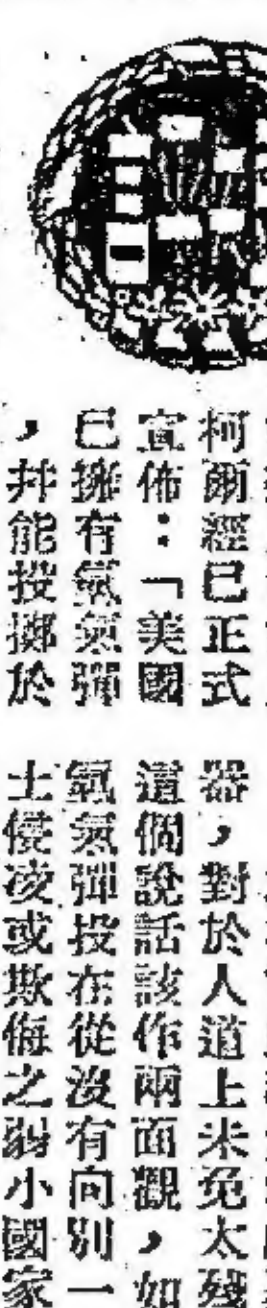 柯爾經已正式
宣佈：「美國
已擁有氫氣彈
，并能投擲於
器，對於人道上未免太殘
這個說話該作兩面觀，如
氫氣彈投在從沒有向別一
士侵凌或欺侮之弱小國家